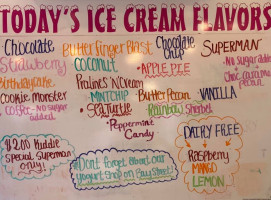 TODAY'S ICE CREAM FLAVORS
Chocolate
Butterfinger Blast
Chocolate Chip
SUPERMAN
Strawberry
Coconut
APPLE PIE
No sugar added
Birthday Cake
Pralines 'N' Cream
Choc caramel pecan
Cookie Monster
MINT CHIP
Butter Pecan
VANILLA
Coffee
No sugar added
Sea Turtle
Rainbow Sherbet
Peppermint Candy
$2.00 Kiddie
Special Superman
only!
Dont forget about our
yogurt shop on Bay Street!
DAIRY FREE
Raspberry
MANGO
LEMON